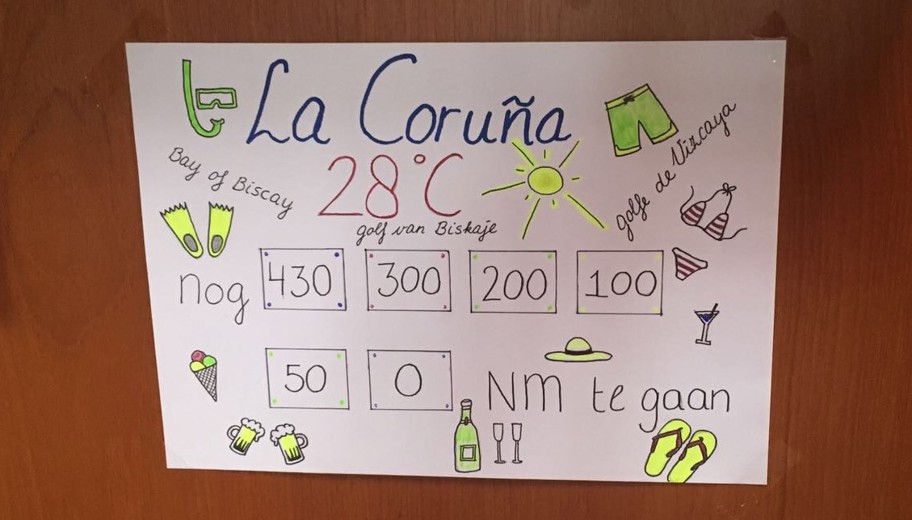 La Coruña
28°C
Bay of Biscay
golf van Biskaje
golfe de Vizcaya
nog 430 300 200 100
50 0 NM te gaan